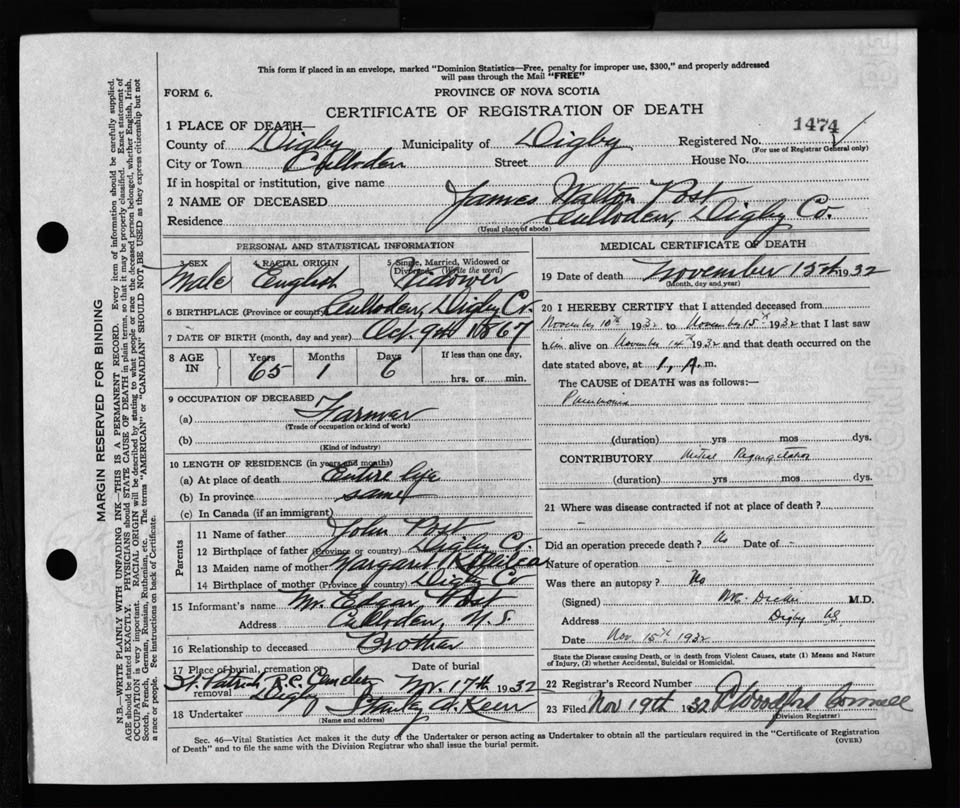 This form if placed in an envelope, marked "Dominion Statistics—Free, penalty for improper use, $300," and properly addressed
will pass through the Mail "FREE"
FORM 6.
PROVINCE OF NOVA SCOTIA
CERTIFICATE OF REGISTRATION OF DEATH
1 PLACE OF DEATH—
1474
County of Digby Municipality of Digby Registered No.
(For use of Registrar General only)
City or Town Culloden Street House No.
If in hospital or institution, give name
2 NAME OF DECEASED James Walton Post
Residence Culloden, Digby Co.
(Usual place of abode)
PERSONAL AND STATISTICAL INFORMATION
3 SEX 4 RACIAL ORIGIN 5 Single, Married, Widowed or Divorced (Write the word)
Male English Widower
6 BIRTHPLACE (Province or country) Culloden, Digby Co.
7 DATE OF BIRTH (month, day and year) Oct. 9th 1867
8 AGE IN Years Months Days If less than one day,
65 1 6 hrs. or min.
9 OCCUPATION OF DECEASED
(a) Farmer
(Trade of occupation or kind of work)
(b)
(Kind of industry)
10 LENGTH OF RESIDENCE (in years and months)
(a) At place of death Entire life
(b) In province same
(c) In Canada (if an immigrant)
Parents
11 Name of father John Post
12 Birthplace of father (Province or country) Digby Co.
13 Maiden name of mother Margaret
14 Birthplace of mother (Province or country) Digby Co
15 Informant's name Mr. Edgar Post
Address Culloden, N. S.
16 Relationship to deceased Brother
17 Place of burial, cremation or removal Date of burial
St. Patrick R.C. Digby Nov. 17th 1932
18 Undertaker Stanley
(Name and address)
MEDICAL CERTIFICATE OF DEATH
19 Date of death November 15th 1932
(Month, day and year)
20 I HEREBY CERTIFY that I attended deceased from
November 10th 1932 to November 15th 1932 that I last saw
him alive on November 14th 1932 and that death occurred on the
date stated above, at 1, A. m.
The CAUSE OF DEATH was as follows:—
Pneumonia
(duration) yrs mos dys.
CONTRIBUTORY Mitral Regurgitation
(duration) yrs. mos. dys.
21 Where was disease contracted if not at place of death?
Did an operation precede death? No Date of -
Nature of operation -
Was there an autopsy? No
(Signed) Dickie M.D.
Address Digby NS
Date Nov. 15th 1932
State the Disease causing Death, or in death from Violent Causes, state (1) Means and Nature
of Injury, (2) whether Accidental, Suicidal or Homicidal.
22 Registrar's Record Number
23 Filed Nov 19th 1932
(Division Registrar)
Sec. 46—Vital Statistics Act makes it the duty of the Undertaker or person acting as Undertaker to obtain all the particulars required in the "Certificate of Registration
of Death" and to file the same with the Division Registrar who shall issue the burial permit.
(OVER)
MARGIN RESERVED FOR BINDING
N.B.—WRITE PLAINLY WITH UNFADING INK—THIS IS A PERMANENT RECORD. Every item of information should be carefully supplied.
AGE should be stated EXACTLY. PHYSICIANS should STATE CAUSE OF DEATH in plain terms, so that it may be properly classified. Exact statement of
OCCUPATION is very important. RACIAL ORIGIN will be described by stating to what people or race the deceased person belonged, whether English, Irish,
Scotch, French, German, Russian, Ruthenian, etc. The terms "AMERICAN" or "CANADIAN" SHOULD NOT BE USED as they express citizenship but not
a race or people. See instructions on back of Certificate.